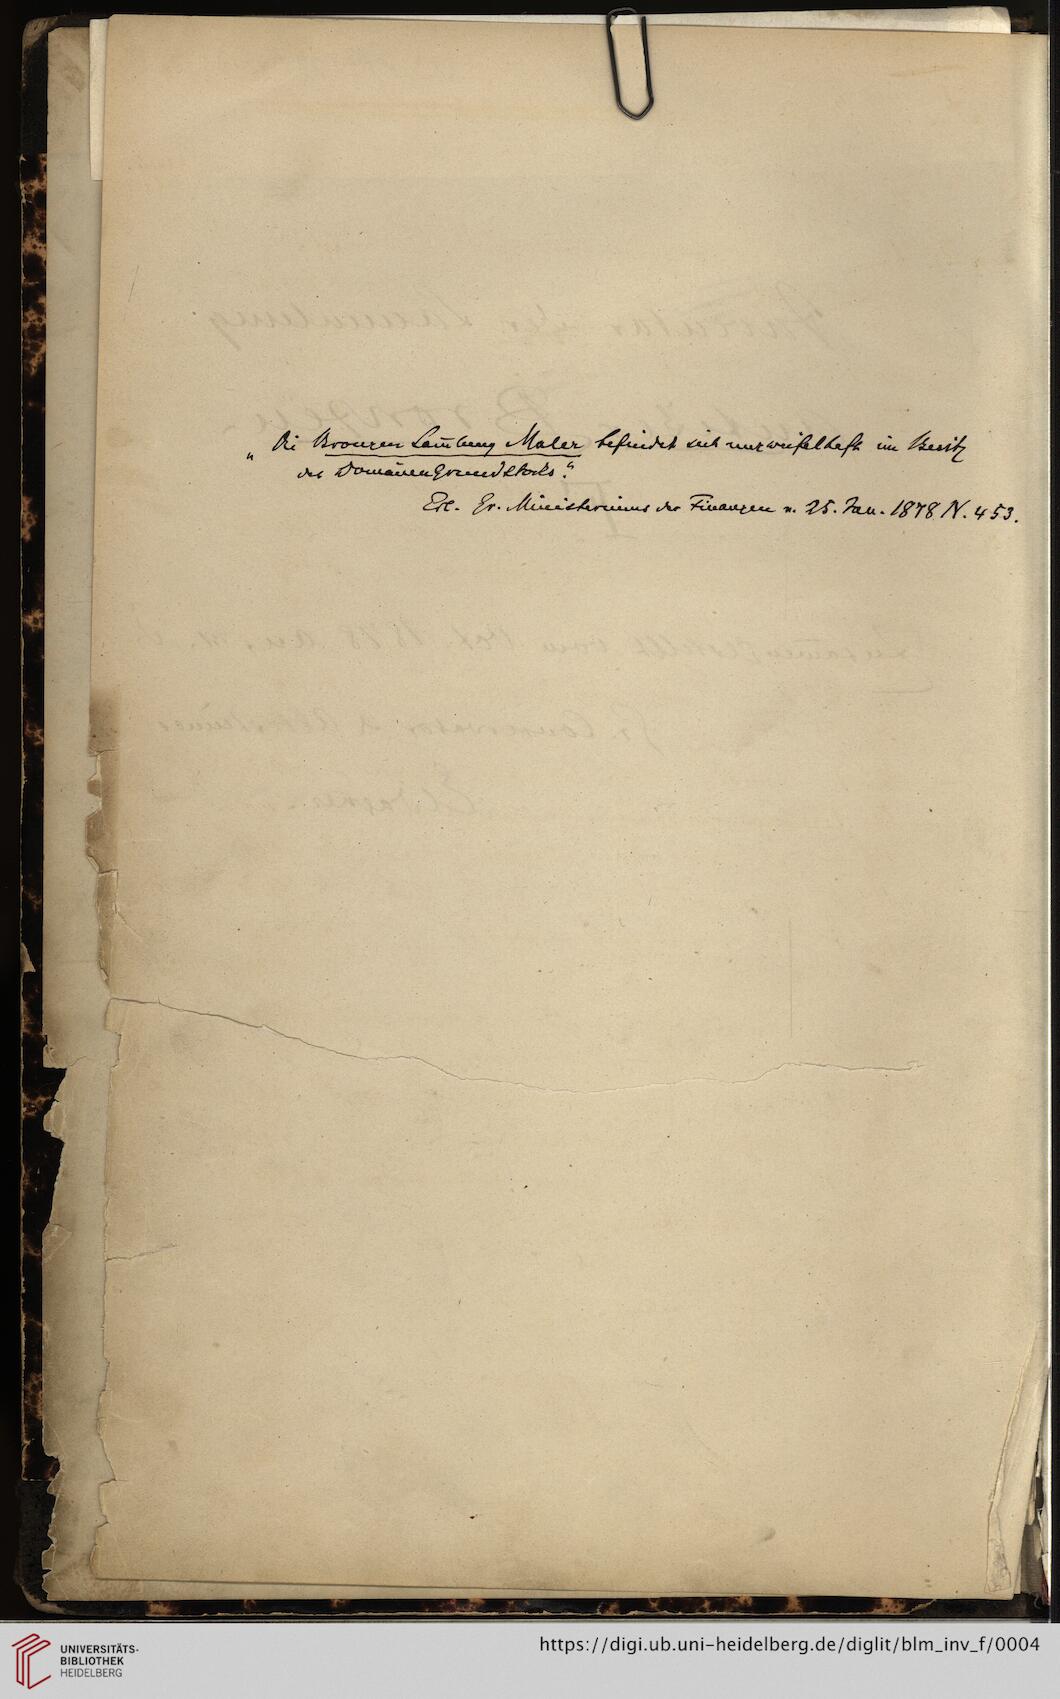 „Die Bronzen Sam̄lung Maler befindet sich unzweifelhaft im Besitz
des Domänengrundstocks.“
Erl. Gr. Ministeriums der Finanzen v. 25. Jan. 1878 N. 453.
UNIVERSITÄTS-
BIBLIOTHEK
HEIDELBERG
https://digi.ub.uni-heidelberg.de/diglit/blm_inv_f/0004